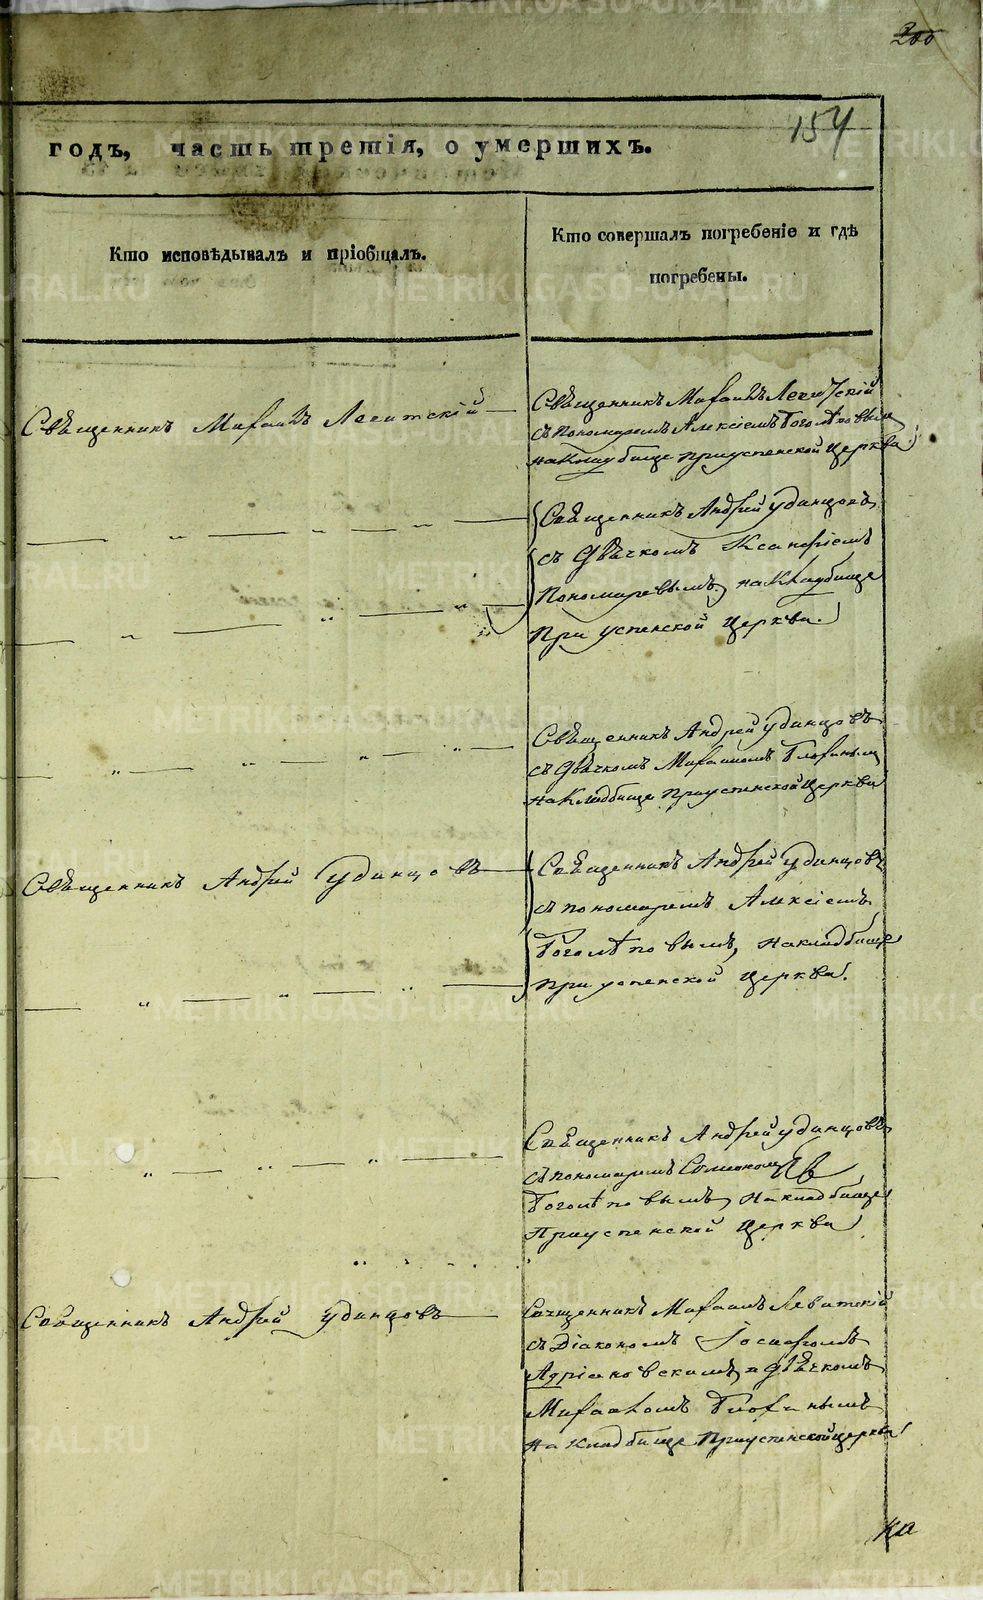 200
154
годъ, часть третія, о умершихъ.
Кто исповѣдывалъ и пріобщалъ.
Кто совершалъ погребеніе и гдѣ
погребены.
Священникъ Михаилъ Левитскій
Священникъ Михаилъ Левитскій
съ Пономаремъ Алексіемъ Боголѣповымъ
на Кладбище При успенской церкви.
Священникъ Андрей Удинцовъ
съ Дьячкомъ
Пономаревымъ, на Кладбище
При успенской церкви.
Священникъ Андрей Удинцовъ
съ Дьячкомъ Михаиломъ
на Кладбище При успенской церкви
Священникъ Андрей Удинцовъ
Священникъ Андрей Удинцовъ
съ пономаремъ Алексіемъ
Боголѣповымъ, на кладбище
При успенской церкви.
Священникъ Андрей Удинцовъ
съ пономаремъ
Боголѣповымъ, на кладбище
При успенской церкви
Священникъ Андрей Удинцовъ
Священникъ Михаилъ Левитскій
съ Діакономъ Іосафомъ
Адріановскимъ и дьячкомъ
Михаиломъ
на кладбище При успенской церкви
METRIKI.GASO-URAL.RU